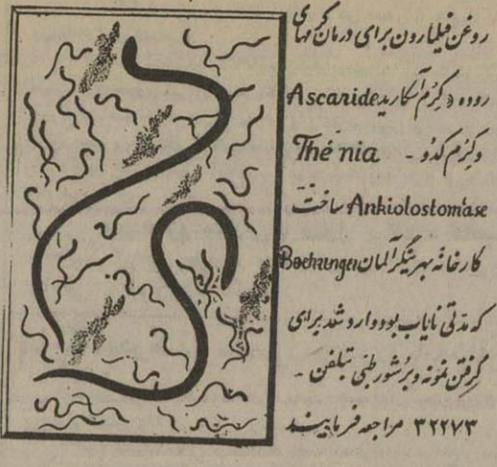 روغن فیلمارون برای درمان کرمهای
روده « کِرُم آسکارید Ascaride
وکِرُم کدُو - Thénia
Ankiolostomase ساخت
کارخانهٔ بهرینگر آلمان Bochringer
که مدّتی نایاب بود وارد شد برای
گرفتن نمونه و بُرُشور طبّی تلفن -
۳۲۲۷۳ مراجعه فرمایند